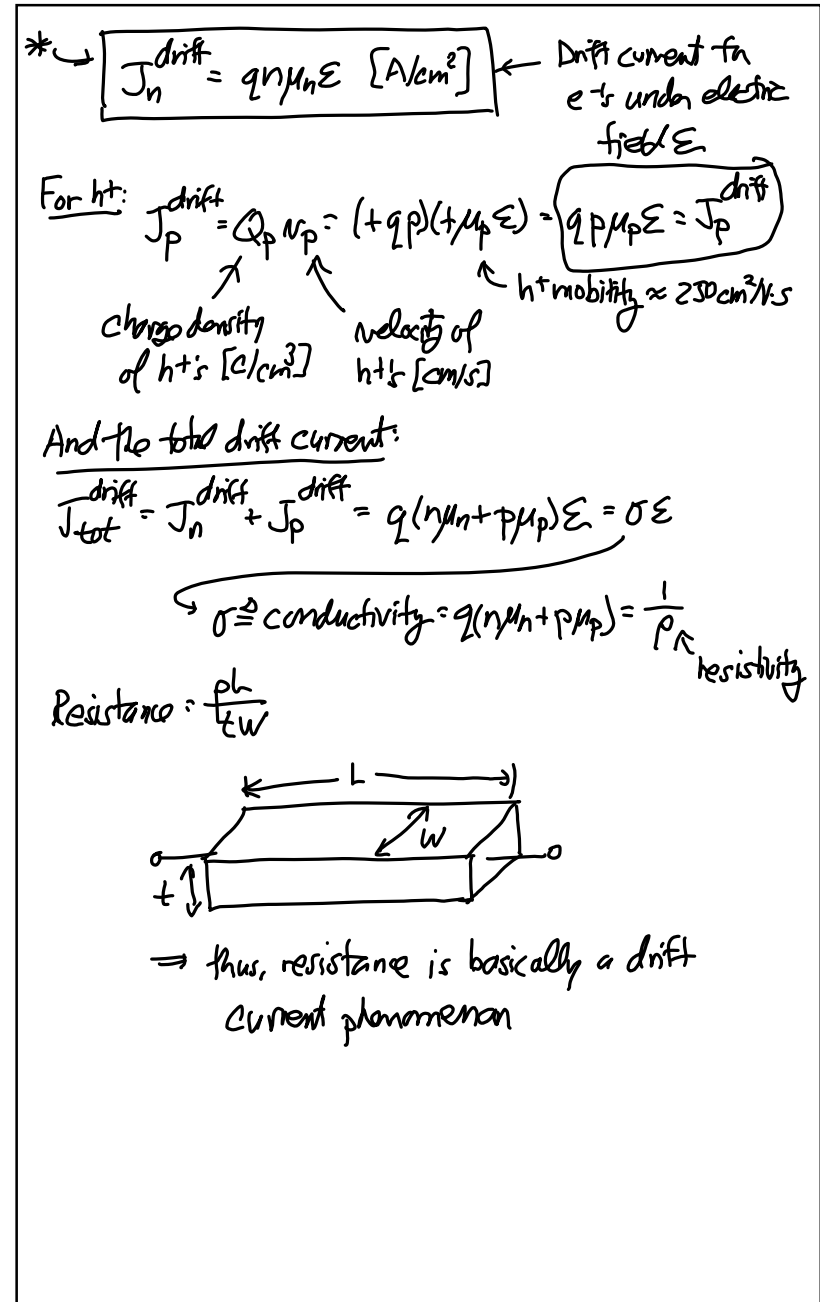 * J_n^drift = qnμ_nE [A/cm²] ← Drift current for
e⁻'s under electric
field E
For h+: J_p^drift = Q_p v_p = (+qp)(+μ_pE) = qpμ_pE = J_p^drift
h+ mobility ≈ 250 cm²/V·s
charge density
of h+'s [C/cm³]
velocity of
h+'s [cm/s]
And the total drift current:
J_tot^drift = J_n^drift + J_p^drift = q(nμ_n + pμ_p)E = σE
σ ≜ conductivity = q(nμ_n + pμ_p) = 1/ρ
resistivity
Resistance = ρL/tW
L
W
t
⇒ thus, resistance is basically a drift
current phenomenon